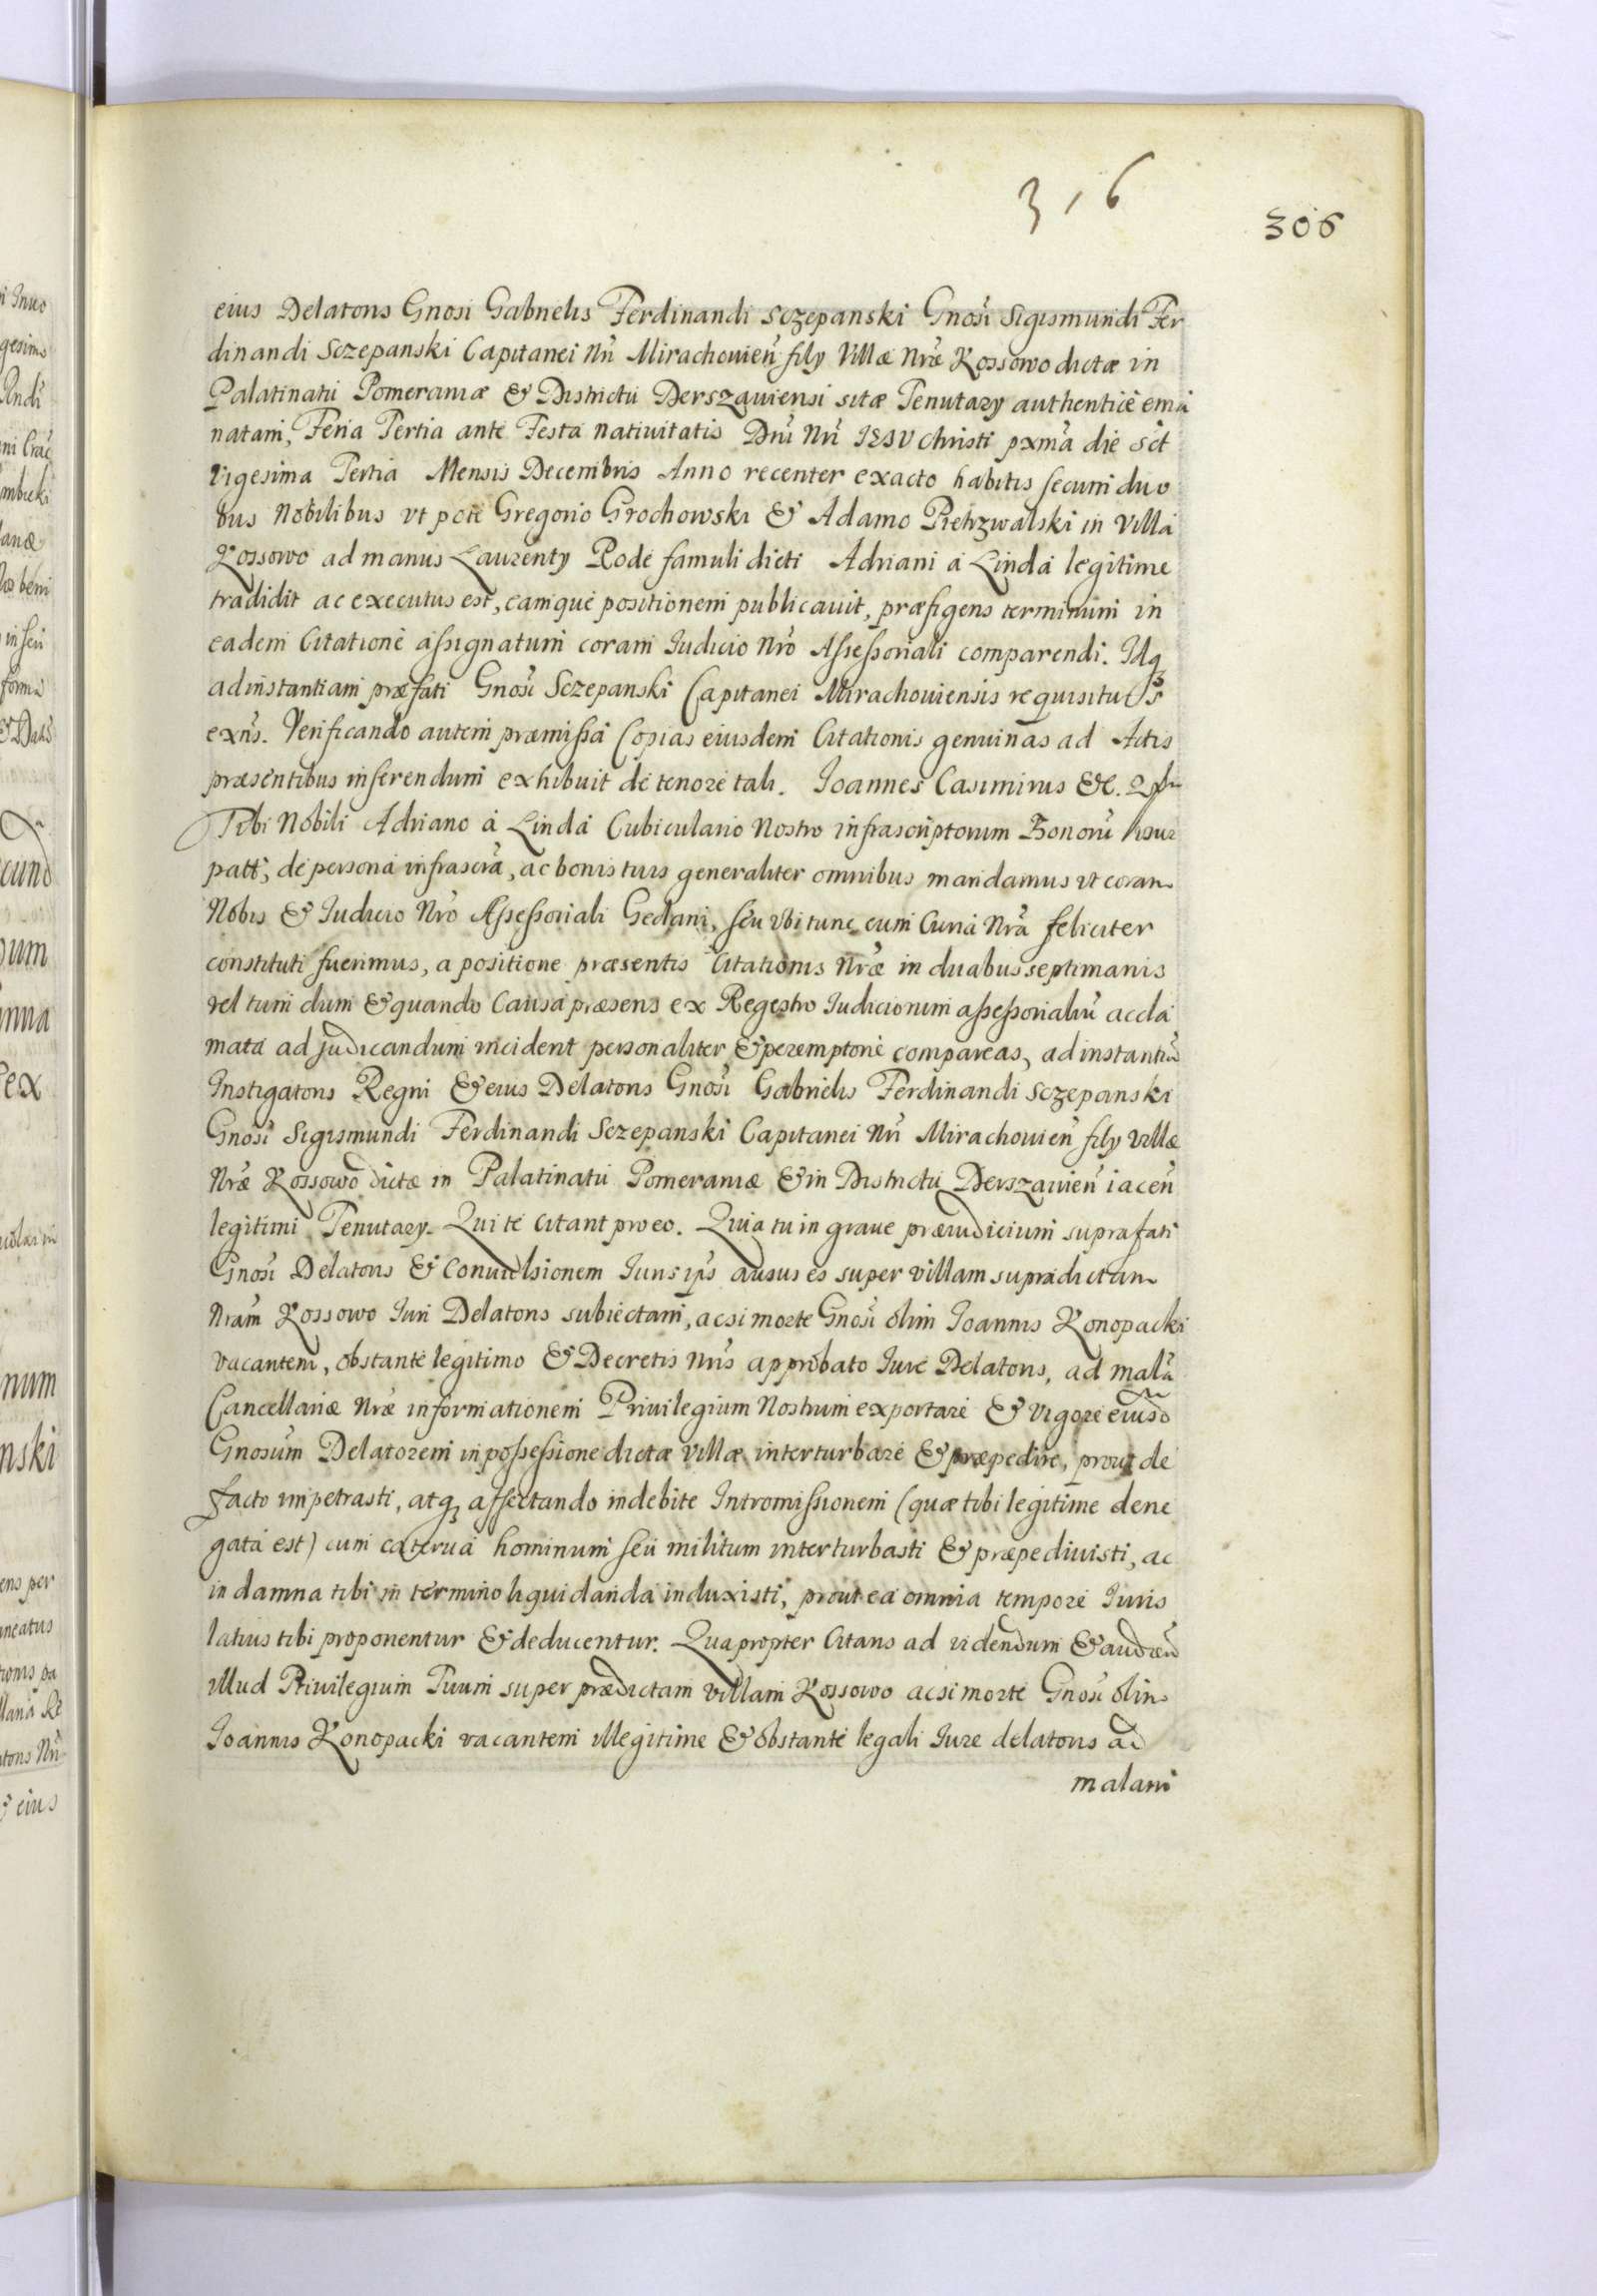 316
306
eius Delatoris Gnosi Gabrielis Ferdinandi Sczepanski Gnosi Sigismundi Fer
dinandi Sczepanski Capitanei Nri Mirachouien fily Villæ Nræ Kossowo dictæ in
Palatinatu Pomeraniæ & Districtu Derszauiensi sitæ Tenutary authentice ema
natam, Feria Tertia ante Festa natiuitatis Dni Nri IESV Christi pxma die sct
vigesima Tertia Mensis Decembris Anno recenter exacto habitis secum duo
bus Nobilibus vt pote Gregorio Grochowski & Adamo Pietrzwalski in Villa
Kossowo ad manus Laurenty Rode famuli dicti Adriani a Linda legitime
tradidit ac executus est, eamque positionem publicauit, præfigens terminum in
eadem Citatione assignatum coram Iudicio Nro Assessoriali comparendi. Idq
ad instantiam præfati Gnosi Sczepanski Capitanei Mirachouiensis requisitus
exns. Verificando autem præmissa Copias eiusdem Citationis genuinas ad Actis
præsentibus inserendum exhibuit de tenore tali. Ioannes Casimirus &c.
Tibi Nobili Adriano a Linda Cubiculario Nostro infrascriptorum Bonoru Vsur
patti, de persona infrascra, ac bonis tuis generaliter omnibus mandamus vt coram
Nobis & Iudicio Nro Assessoriali Gedani, seu vbi tunc cum Curia Nra feliciter
constituti fuerimus, a positione præsentis Citationis Nræ in duabus septimanis
vel tum dum & quando Causa præsens ex Regestro Iudiciorum assessorialiu accla
mata ad judicandum inciderit personaliter & peremptorie compareas, ad instantia
Instigatoris Regni & eius Delatoris Gnosi Gabrielis Ferdinandi Sczepanski
Gnosi Sigismundi Ferdinandi Sczepanski Capitanei Nri Mirachouien fily villæ
Nræ Kossowo dictæ in Palatinatu Pomeraniæ & in Districtu Derszauien iacen
legitimi Tenutary. Qui te citant pro eo. Quia tu in graue præiudicium suprafati
Gnosi Delatoris & Conuulsionem Iuris ips ausus es super villam supradictam
Nram Kossowo Iuri Delatoris subiectam, ac si morte Gnosi olim Ioannis Konopacki
vacantem, obstante legitimo & Decretis Nris approbato Iure Delatoris, ad mala
Cancellariæ Nræ informationem Priuilegium Nostrum exportare & vigore eiusd
Gnosum Delatorem in possessione dictæ villæ interturbare & præpedire, prout de
facto impetrasti, atq affectando indebite Intromissionem (quæ tibi legitime dene
gata est) cum caterua hominum seu militum interturbasti & præpediuisti, ac
in damna tibi in termino liquidanda induxisti, prout ea omnia tempore Iuris
latius tibi proponentur & deducentur. Quapropter Citaris ad videndum & audien
illud Priuilegium Tuum super prædictam villam Kossowo ac si morte Gnosi olim
Ioannis Konopacki vacantem illegitime & obstante legali Iure delatoris ad
malam